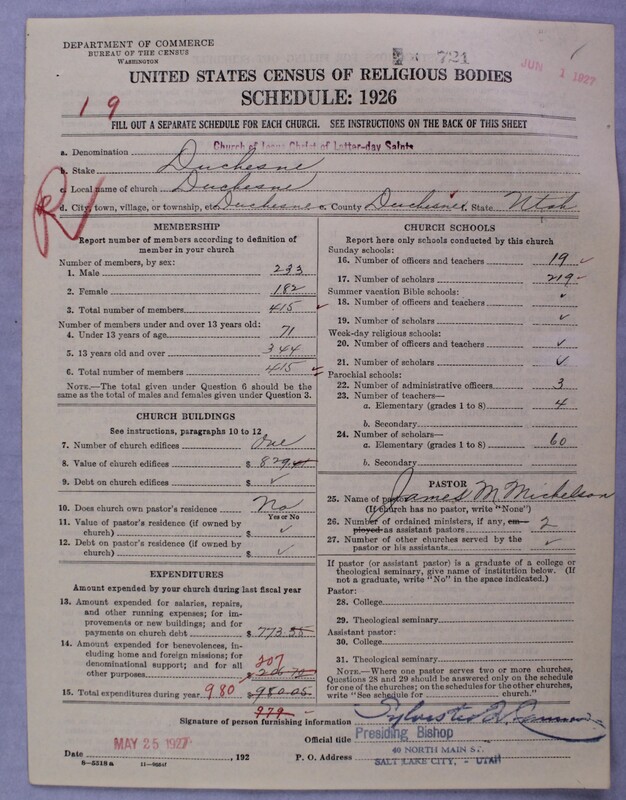 DEPARTMENT OF COMMERCE
BUREAU OF THE CENSUS
WASHINGTON
721
JUN 1 1927
UNITED STATES CENSUS OF RELIGIOUS BODIES
SCHEDULE: 1926
1 9
FILL OUT A SEPARATE SCHEDULE FOR EACH CHURCH. SEE INSTRUCTIONS ON THE BACK OF THIS SHEET
a. Denomination Church of Jesus Christ of Latter-day Saints
b. Stake Duchesne
c. Local name of church Duchesne
d. City, town, village, or township, etc. Duchesne e. County Duchesne f. State Utah
MEMBERSHIP
Report number of members according to definition of
member in your church
Number of members, by sex:
1. Male 233
2. Female 182
3. Total number of members 415
Number of members under and over 13 years old:
4. Under 13 years of age 71
5. 13 years old and over 344
6. Total number of members 415
NOTE.—The total given under Question 6 should be
same as the total of males and females given under Question 3.
CHURCH BUILDINGS
See instructions, paragraphs 10 to 12
7. Number of church edifices One
8. Value of church edifices $ 829.
9. Debt on church edifices $ ✓
10. Does church own pastor's residence? No
Yes or No
11. Value of pastor's residence (if owned by
church) $ ✓
12. Debt on pastor's residence (if owned by
church) $ ✓
EXPENDITURES
Amount expended by your church during last fiscal year
13. Amount expended for salaries, repairs,
and other running expenses; for im-
provements or new buildings; and for
payments on church debt $ 773.35
14. Amount expended for benevolences,
including home and foreign missions; for
denominational support; and for all
other purposes 207
$ 206.70
15. Total expenditures during year 980 $ 980.05
979
CHURCH SCHOOLS
Report here only schools conducted by this church
Sunday schools:
16. Number of officers and teachers 19 ✓
17. Number of scholars 219
Summer vacation Bible schools:
18. Number of officers and teachers ✓
19. Number of scholars ✓
Week-day religious schools:
20. Number of officers and teachers ✓
21. Number of scholars ✓
Parochial schools:
22. Number of administrative officers 3
23. Number of teachers—
a. Elementary (grades 1 to 8) 4
b. Secondary
24. Number of scholars—
a. Elementary (grades 1 to 8) 60
b. Secondary
PASTOR
25. Name of pastor James M Michelson
(If church has no pastor, write "None")
26. Number of ordained ministers, if any, em-
ployed as assistant pastors 2
27. Number of other churches served by the
pastor or his assistants ✓
If pastor (or assistant pastor) is a graduate of a college or
theological seminary, give name of institution below. (If
not a graduate, write "No" in the space indicated.)
Pastor:
28. College
29. Theological seminary
Assistant pastor:
30. College
31. Theological seminary
NOTE.—Where one pastor serves two or more churches,
Questions 28 and 29 should be answered only on the schedule
for one of the churches; on the schedules for the other churches,
write "See schedule for church."
Signature of person furnishing information Sylvester Q. Cannon
Official title Presiding Bishop
Date MAY 25 1927, 192 P. O. Address 40 NORTH MAIN ST.
SALT LAKE CITY, - UTAH
8-5318a